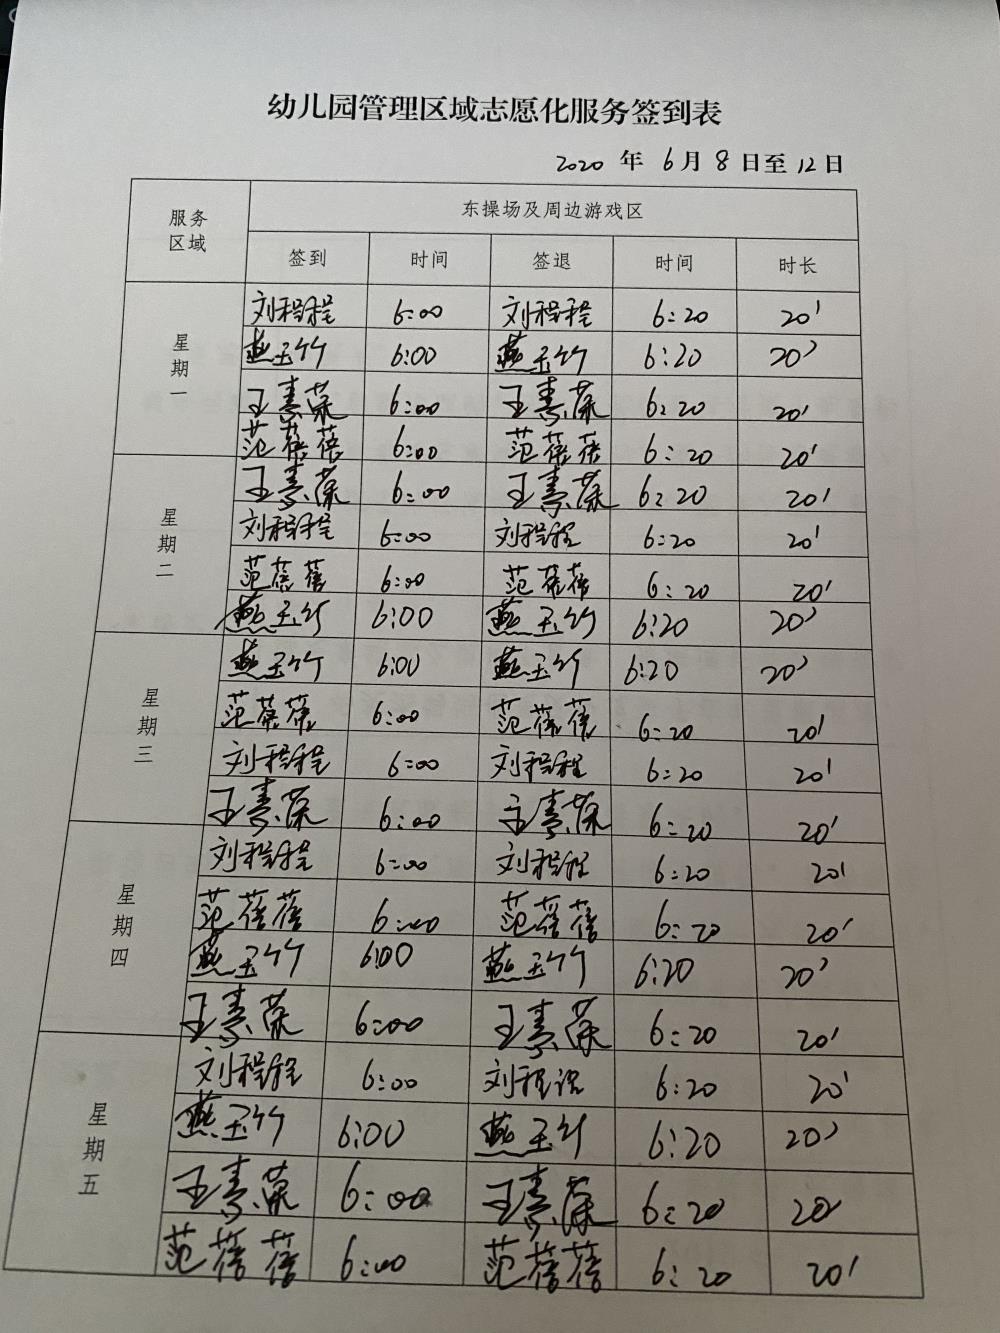 幼儿园管理区域志愿化服务签到表
2020 年 6 月 8 日至 12 日
服务区域 东操场及周边游戏区
签到 时间 签退 时间 时长
星期一
刘程程 6:00 刘程程 6:20 20'
燕玉竹 6:00 燕玉竹 6:20 20'
王素荣 6:00 王素荣 6:20 20'
范蓓蓓 6:00 范蓓蓓 6:20 20'
星期二
王素荣 6:00 王素荣 6:20 20'
刘程程 6:00 刘程程 6:20 20'
范蓓蓓 6:00 范蓓蓓 6:20 20'
燕玉竹 6:00 燕玉竹 6:20 20'
星期三
燕玉竹 6:00 燕玉竹 6:20 20'
范蓓蓓 6:00 范蓓蓓 6:20 20'
刘程程 6:00 刘程程 6:20 20'
王素荣 6:00 王素荣 6:20 20'
星期四
刘程程 6:00 刘程程 6:20 20'
范蓓蓓 6:00 范蓓蓓 6:20 20'
燕玉竹 6:00 燕玉竹 6:20 20'
王素荣 6:00 王素荣 6:20 20'
星期五
刘程程 6:00 刘程程 6:20 20'
燕玉竹 6:00 燕玉竹 6:20 20'
王素荣 6:00 王素荣 6:20 20'
范蓓蓓 6:00 范蓓蓓 6:20 20'